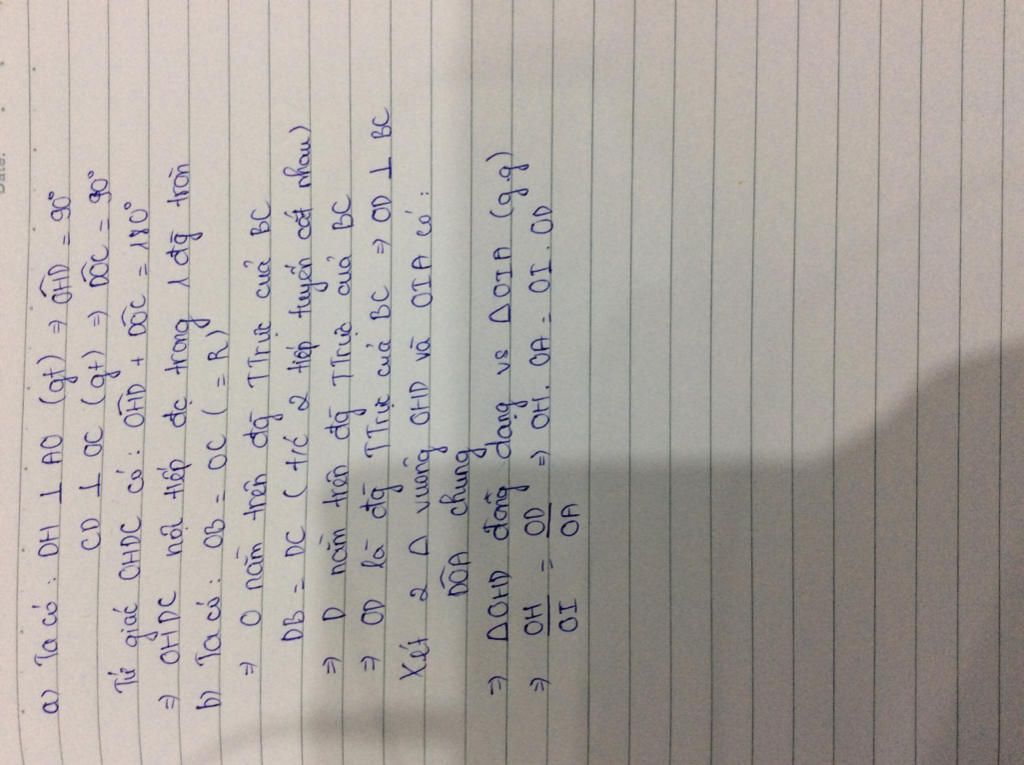 Date:
a) Ta có: DH ⊥ AO (gt) ⇒ \widehat{OHD} = 90°
CD ⊥ OC (gt) ⇒ \widehat{DOC} = 90°
Tứ giác OHDC có: \widehat{OHD} + \widehat{DOC} = 180°
⇒ OHDC nội tiếp đc trong 1 đg tròn
b) Ta có: OB = OC ( = R)
⇒ O nằm trên đg TTrực của BC
DB = DC ( t/c 2 tiếp tuyến cắt nhau)
⇒ D nằm trên đg TTrực của BC
⇒ OD là đg TTrực của BC ⇒ OD ⊥ BC
Xét 2 Δ vuông OHD và OIA có:
\widehat{DOA} chung
⇒ ΔOHD đồng dạng vs ΔOIA (g.g)
⇒ OH/OI = OD/OA ⇒ OH. OA = OI. OD